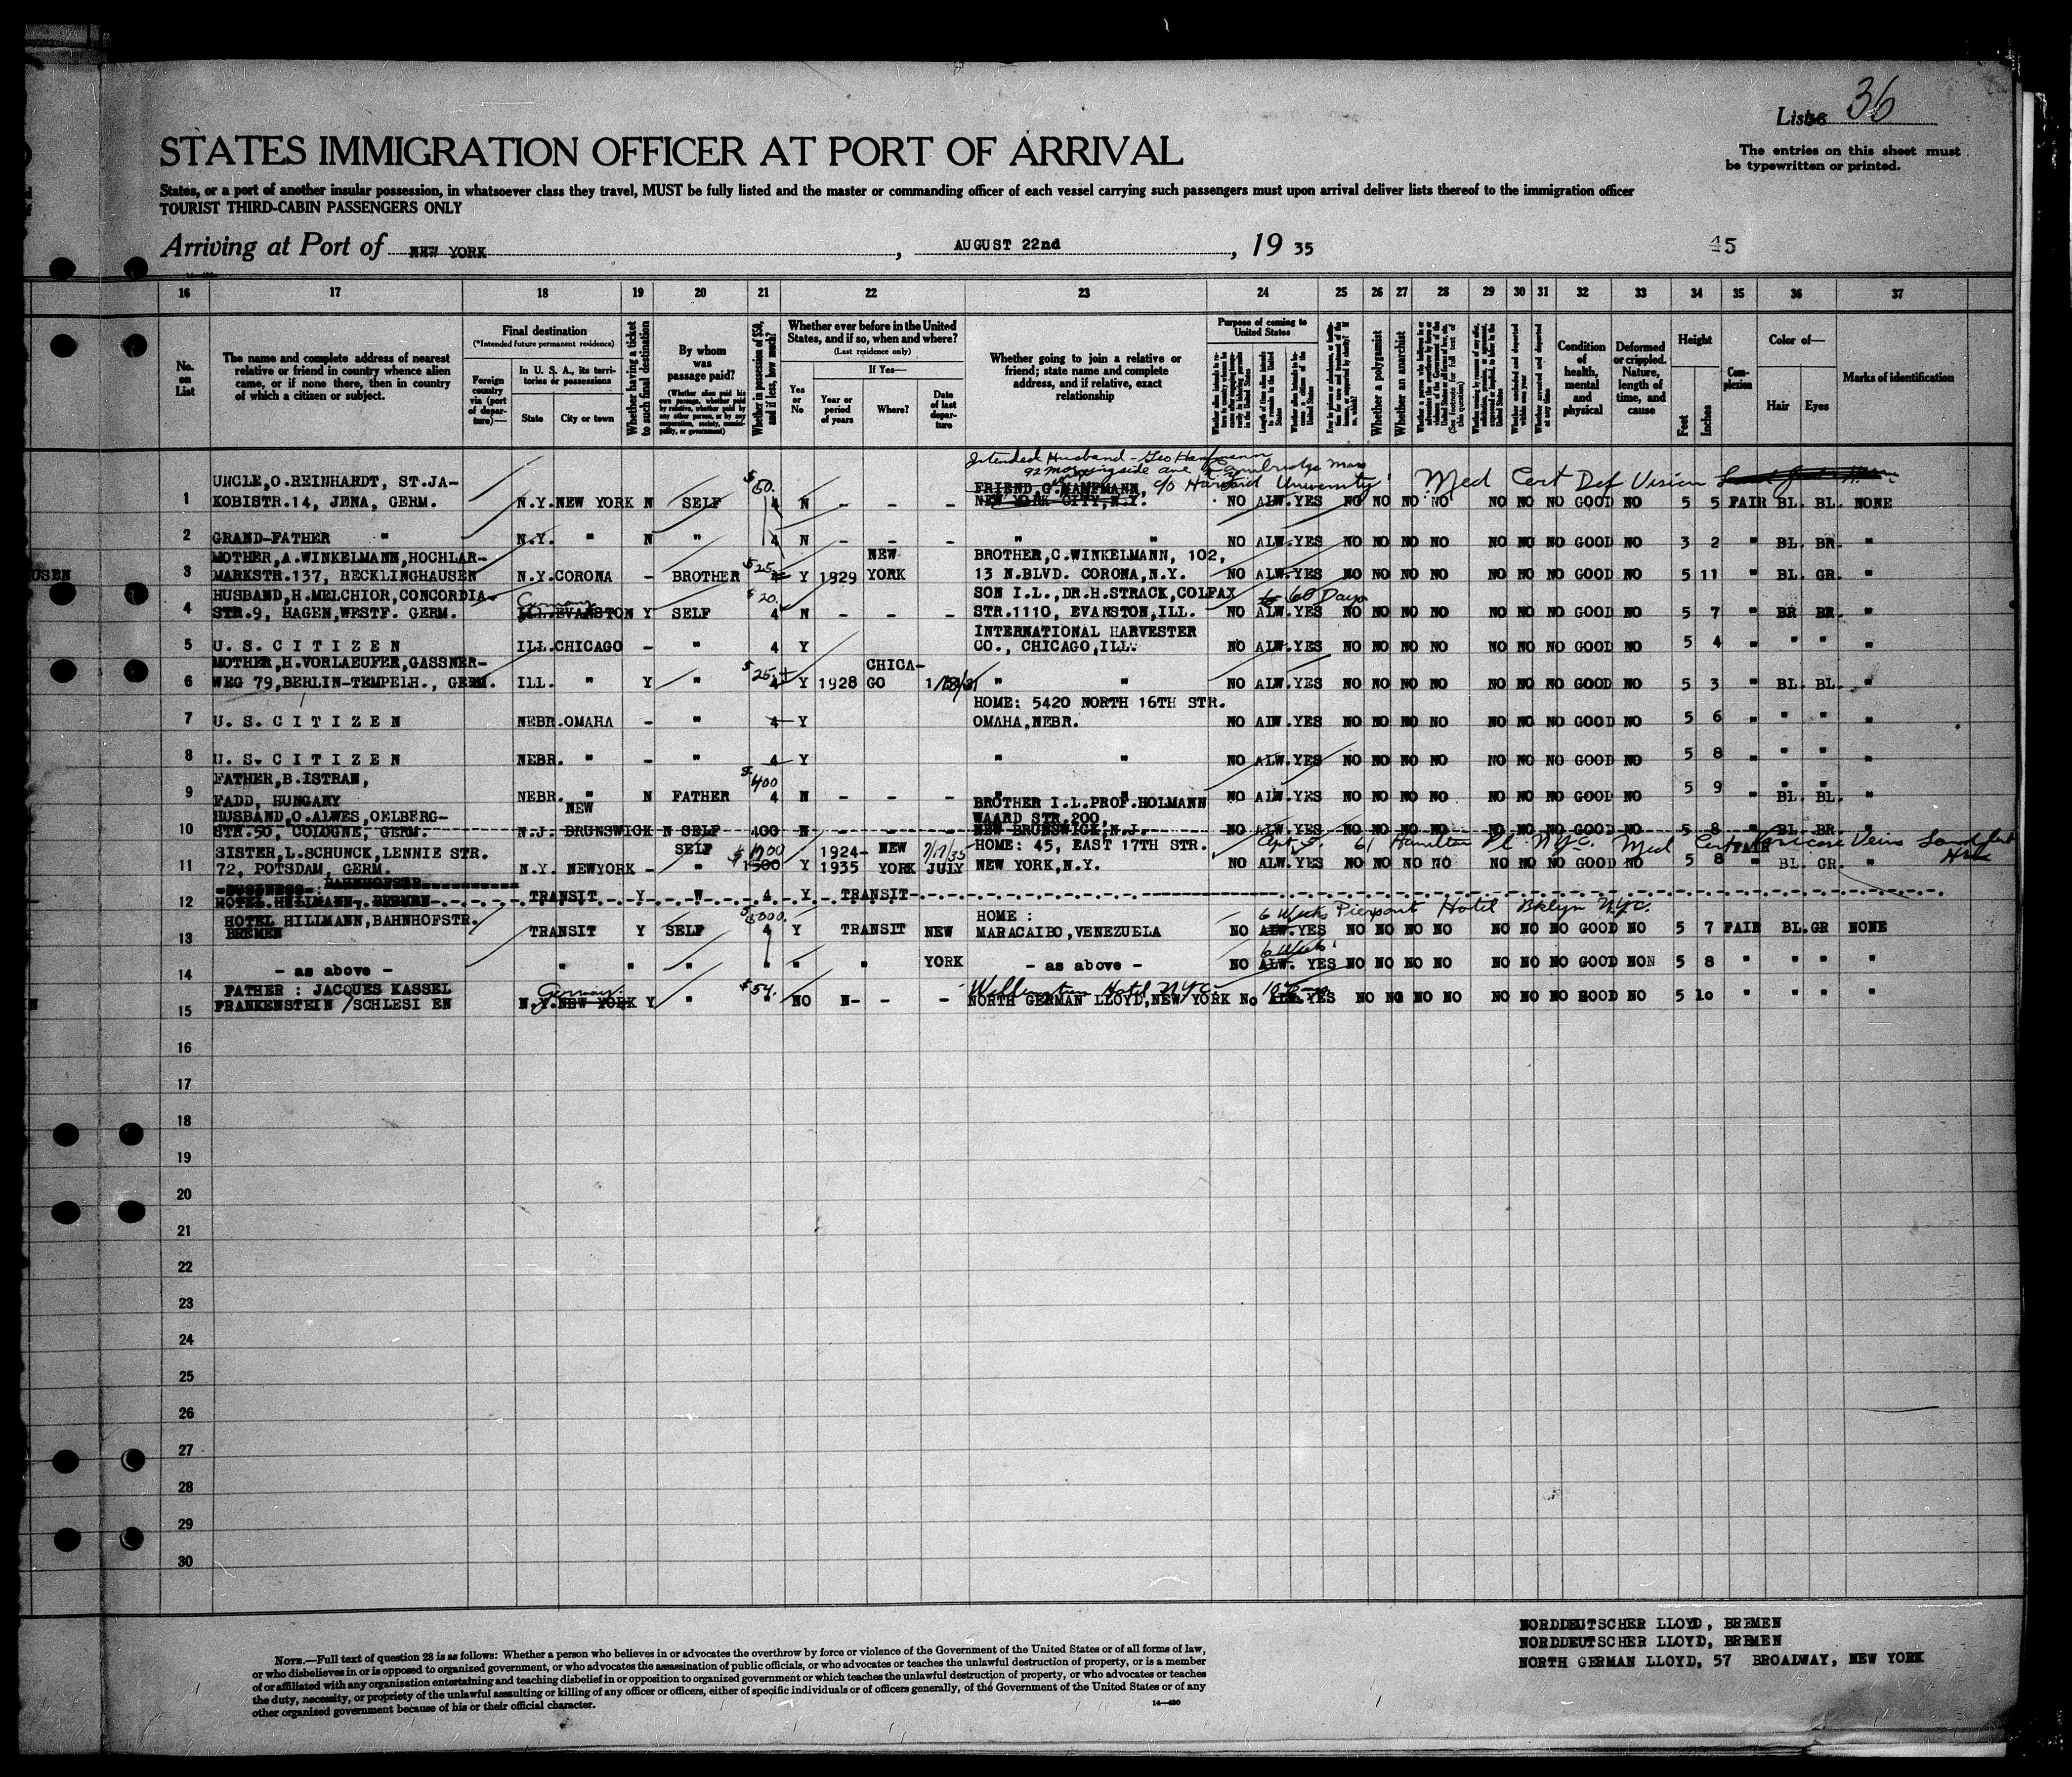 List 36
STATES IMMIGRATION OFFICER AT PORT OF ARRIVAL
The entries on this sheet must
be typewritten or printed.
States, or a port of another insular possession, in whatsoever class they travel, MUST be fully listed and the master or commanding officer of each vessel carrying such passengers must upon arrival deliver lists thereof to the immigration officer
TOURIST THIRD-CABIN PASSENGERS ONLY
Arriving at Port of NEW YORK, AUGUST 22nd, 19 35
45
16 17 18 19 20 21 22 23 24 25 26 27 28 29 30 31 32 33 34 35 36 37
No. on List
The name and complete address of nearest
relative or friend in country whence alien
came, or if none there, then in country
of which a citizen or subject.
Final destination
(*Intended future permanent residence)
Foreign country via (port of departure)—
In U. S. A., its territories or possessions
State City or town
Whether having a ticket to such final destination
By whom was passage paid?
Whether in possession of $50, and if less, how much?
Whether ever before in the United
States, and if so, when and where?
(Last residence only)
If Yes—
Yes or No
Year or period of years
Where?
Date of last departure
Whether going to join a relative or
friend; state name and complete
address, and if relative, exact
relationship
Purpose of coming to United States
Whether a polygamist
Whether an anarchist
Condition of health, mental and physical
Deformed or crippled. Nature, length of time, and cause
Height
Feet Inches
Complexion
Color of—
Hair Eyes
Marks of identification
Intended Husband - Geo Hanfmann
92 Morningside ave Cambridge Mass
UNCLE,O.REINHARDT, ST.JA-
FRIEND,G.HANFMANN, c/o Harvard University
Med Cert Def Vision
1 KOBISTR.14, JENA, GERM. N.Y. NEW YORK N SELF $60. 4 N - - - NEW YORK CITY,N.Y. NO ALW. YES NO NO NO NO NO NO NO GOOD NO 5 5 FAIR BL. BL. NONE
2 GRAND-FATHER " N.Y. " N " 4 N - - - " " NO ALW. YES NO NO NO NO NO NO NO GOOD NO 3 2 " BL. BR. "
MOTHER,A.WINKELMANN,HOCHLAR- NEW BROTHER,C.WINKELMANN, 102,
3 MARKSTR.137, RECKLINGHAUSEN N.Y. CORONA - BROTHER $25 Y 1929 YORK 13 N.BLVD. CORONA,N.Y. NO ALW. YES NO NO NO NO NO NO NO GOOD NO 5 11 " BL. GR. "
HUSBAND,H.MELCHIOR,CONCORDIA- Germany $20. SON I.L.,DR.H.STRACK,COLFAX 60 Days
4 STR.9, HAGEN,WESTF. GERM. ILL. EVANSTON Y SELF 4 N - - - STR.1110, EVANSTON,ILL. NO ALW. YES NO NO NO NO NO NO NO GOOD NO 5 7 " BR BR. "
INTERNATIONAL HARVESTER
5 U. S. C I T I Z E N ILL. CHICAGO - " 4 Y CO., CHICAGO,ILL. NO ALW. YES NO NO NO NO NO NO NO GOOD NO 5 4 " " " "
MOTHER,H.VORLAEUFER,GASSNER- $25 CHICA-
6 WEG 79,BERLIN-TEMPELH., GERM. ILL. " Y " 4 Y 1928 GO " " NO ALW. YES NO NO NO NO NO NO NO GOOD NO 5 3 " BL. BL. "
HOME: 5420 NORTH 16TH STR.
7 U. S. C I T I Z E N NEBR. OMAHA - " 4 Y OMAHA,NEBR. NO ALW. YES NO NO NO NO NO NO NO GOOD NO 5 6 " " " "
8 U. S. C I T I Z E N NEBR. " - " 4 Y " " NO ALW. YES NO NO NO NO NO NO NO GOOD NO 5 8 " " " "
FATHER,B.ISTRAN, $400
9 FADD, HUNGARY NEBR. " N FATHER 4 N - - - " " NO ALW. YES NO NO NO NO NO NO NO GOOD NO 5 9 " BL. BL. "
HUSBAND,O.ALWES,OELBERG- NEW BROTHER I.L.PROF.HOLMANN
WAARD STR.200,
10 STR.50, COLOGNE, GERM. N.J. BRUNSWICK N SELF 400 N - - - NEW BRUNSWICK,N.J. NO ALW. YES NO NO NO NO NO NO NO GOOD NO 5 8 " BL. BR. "
SISTER,L.SCHUNCK,LENNIE STR. SELF 1924- NEW 7/17/35 HOME: 45, EAST 17TH STR. 61 Hamilton Pl. N.Y.C. Med Cert Varicose Veins
11 72, POTSDAM, GERM. N.Y. NEWYORK - " 1500 Y 1935 YORK JULY NEW YORK,N.Y. NO ALW. YES NO NO NO NO NO NO NO GOOD NO 5 8 FAIR BL. GR. "
BUSINESS : BAHNHOFSTR
12 HOTEL HILLMANN, BREMEN TRANSIT Y " 4 Y TRANSIT
HOTEL HILLMANN,BAHNHOFSTR. $5000. HOME : 6 Weeks Pierpont Hotel Bklyn N.Y.C.
13 BREMEN TRANSIT Y SELF 4 Y TRANSIT NEW MARACAIBO,VENEZUELA NO ALW. YES NO NO NO NO NO NO NO GOOD NO 5 7 FAIR BL. GR NONE
6 Weeks
14 - as above - " " " " " " YORK - as above - NO ALW. YES NO NO NO NO NO NO NO GOOD NON 5 8 " " " "
FATHER : JACQUES KASSEL Germany $54. Wellington Hotel N.Y.C.
15 FRANKENSTEIN /SCHLESI EN N.Y. NEW YORK Y " " NO N- - - NORTH GERMAN LLOYD,NEW YORK No ALW. YES NO NO NO NO NO NO NO HOOD NO 5 10 " " " "
16
17
18
19
20
21
22
23
24
25
26
27
28
29
30
NORDDEUTSCHER LLOYD, BREMEN
NORDDEUTSCHER LLOYD, BREMEN
NORTH GERMAN LLOYD, 57 BROADWAY, NEW YORK
NOTE.—Full text of question 28 is as follows: Whether a person who believes in or advocates the overthrow by force or violence of the Government of the United States or of all forms of law,
or who disbelieves in or is opposed to organized government, or who advocates the assassination of public officials, or who advocates or teaches the unlawful destruction of property, or is a member
of or affiliated with any organization entertaining and teaching disbelief in or opposition to organized government or which teaches the unlawful destruction of property, or who advocates or teaches
the duty, necessity, or propriety of the unlawful assaulting or killing of any officer or officers, either of specific individuals or of officers generally, of the Government of the United States or of any
other organized government because of his or their official character.
14—430